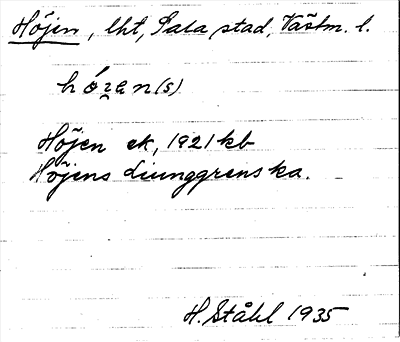 Höjen, lht, Sala stad, Västm. l.
hó̱ʒ̯an(s)
Höjen ek, 1921 kb
Höjens Liunggrenska.
H. Ståhl 1935